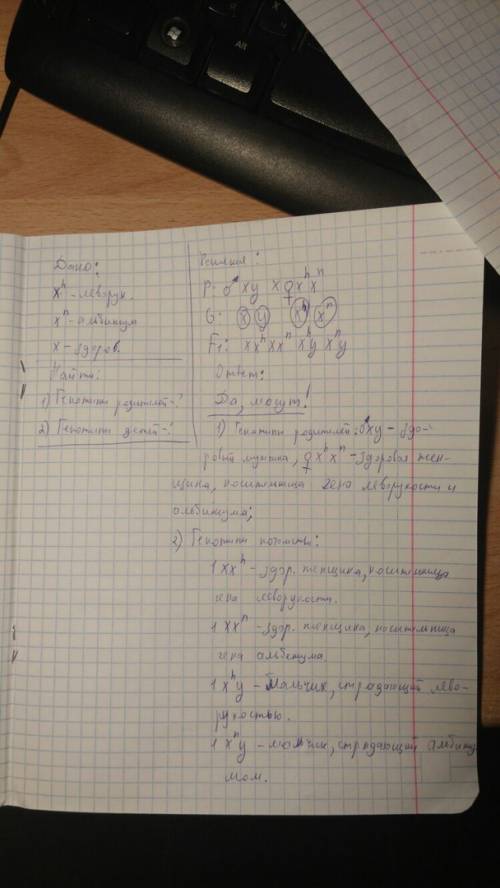 Дано:
X^h - леворук.
X^n - альбинизм
X - здоров.
Найти:
1) Генотипы родителей - ?
2) Генотипы детей - ?
Решение:
P: ♂ XY x ♀ X^h X^n
G: X Y X^h X^n
F1: XX^h XX^n X^hY X^nY
Ответ:
Да, могут!
1) Генотипы родителей: ♂XY - здо-
ровый мужчина, ♀ X^h X^n - здоровая жен-
щина, носительница гена леворукости и
альбинизма;
2) Генотипы потомства:
1 XX^h - здор. женщина, носительница
гена леворукости.
1 XX^n - здор. женщина, носительница
гена альбинизма.
1 X^hY - Мальчик, страдающий лево-
рукостью.
1 X^nY - мальчик, страдающий альбиниз-
мом.